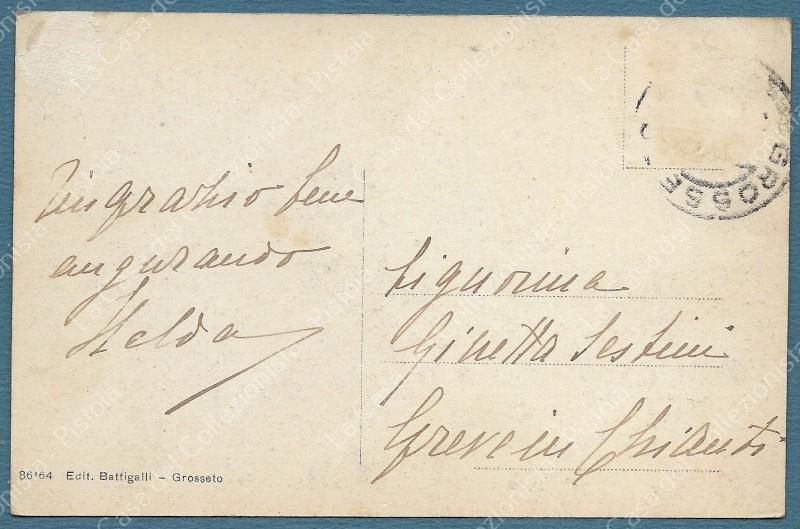 Ringrazio bene
augurando
Velda
Signorina
Ginetta Sestini
Greve in Chianti
GROSSE
86164 Edit. Battigalli – Grosseto
La Casa del Collezionista - Pistoia